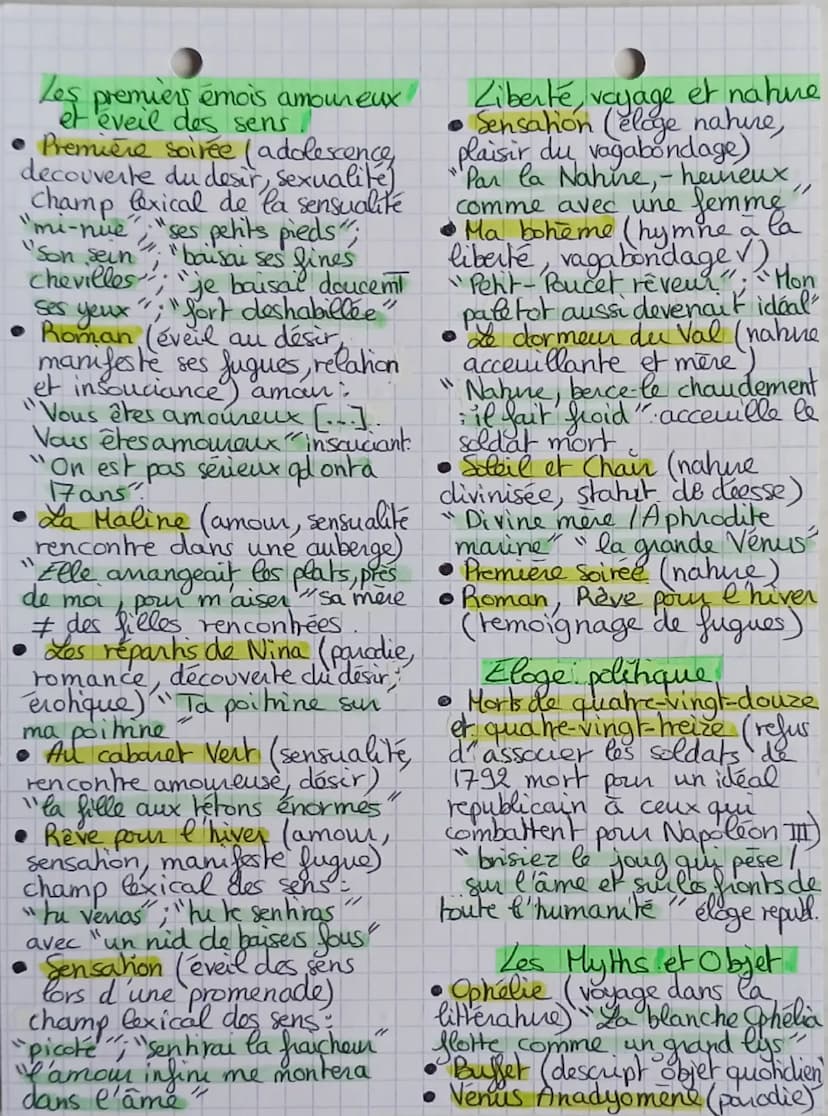 Les premiers émois amoureux
et éveil des sens
• Première soirée (adolescence,
decouverte du desir, sexualité)
champ lexical de la sensualité
"mi-nue"; "ses petits pieds";
"Son sein"; "baisai ses fines
chevilles"; "je baisai doucemt
ses yeux"; "fort deshabillée"
• Roman (éveil au désir,
manifeste ses fugues, relation
et insouciance) amour :
"Vous êtes amoureux [...].
Vous êtes amoureux" insouciant:
"On est pas sérieux qd on a
17 ans".
• La Maline (amour, sensualité
rencontre dans une auberge)
"Elle arrangeait les plats, près
de moi, pour m'aiser" sa mère
≠ des filles rencontrées.
• Les réparties de Nina (parodie,
romance, découverte du désir,
érotique) "Ta poitrine sur
ma poitrine"
• Au cabaret Vert (sensualité,
rencontre amoureuse, désir)
"la fille aux tétons énormes"
• Rêve pour l'hiver (amour,
sensation, manifeste fugue)
champ lexical des sens :
"tu verras"; "tu te sentiras"
avec "un nid de baisers fous"
• Sensation (éveil des sens
lors d'une promenade)
champ lexical des sens :
"picoté"; "sentirai la fraicheur"
"l'amour infini me montera
dans l'âme"
Liberté, voyage et nature
• Sensation (éloge nature,
plaisir du vagabondage)
"Par la Nature, - heureux
comme avec une femme"
• Ma bohème (hymne à la
liberté, vagabondage √)
"Petit-Poucet rêveur"; "Mon
paletot aussi devenait idéal"
• Le dormeur du Val (nature
acceuillante et mère)
"Nature, berce-le chaudement
: il fait froid" : acceuille le
soldat mort
• Soleil et Chair (nature
divinisée, statut de déesse)
"Divine mère / Aphrodite
marine" "la grande Vénus"
• Première Soirée (nature)
• Roman, Rêve pour l'hiver
(temoignage de fugues)
Eloge politique
• Morts de quatre-vingt-douze
et quatre-vingt-treize (refus
d'associer les soldats de
1792 mort pour un idéal
republicain à ceux qui
combattent pour Napoléon III)
"brisiez le joug qui pèse /
sur l'âme et sur les fronts de
toute l'humanité" éloge republ.
Les Myths et Objet
• Ophélie (voyage dans la
littérature) "La blanche Ophélia
flotte comme un grand lys"
• Buffet (descript° objet quotidien)
• Vénus Anadyomène (parodie)